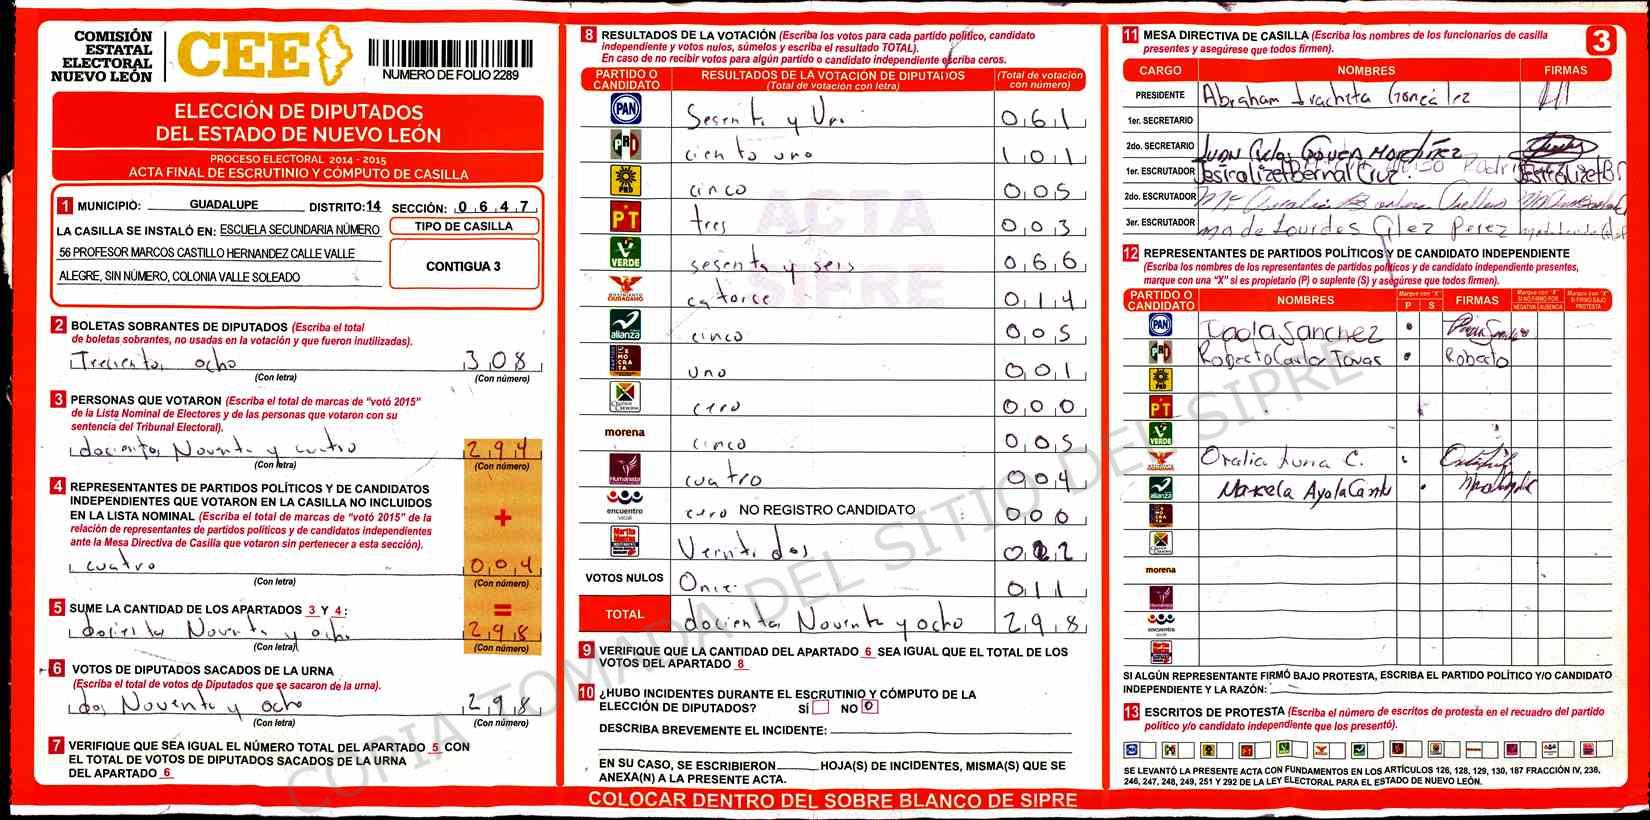 COMISIÓN
ESTATAL
ELECTORAL
NUEVO LEÓN
CEE
NUMERO DE FOLIO 2289
ELECCIÓN DE DIPUTADOS
DEL ESTADO DE NUEVO LEÓN
PROCESO ELECTORAL 2014 - 2015
ACTA FINAL DE ESCRUTINIO Y CÓMPUTO DE CASILLA
1 MUNICIPIO: GUADALUPE DISTRITO:14 SECCIÓN: 0 6 4 7
LA CASILLA SE INSTALÓ EN: ESCUELA SECUNDARIA NÚMERO
56 PROFESOR MARCOS CASTILLO HERNANDEZ CALLE VALLE
ALEGRE, SIN NÚMERO, COLONIA VALLE SOLEADO
TIPO DE CASILLA
CONTIGUA 3
2 BOLETAS SOBRANTES DE DIPUTADOS (Escriba el total
de boletas sobrantes, no usadas en la votación y que fueron inutilizadas).
ocho 3 0 8
(Con letra) (Con número)
3 PERSONAS QUE VOTARON (Escriba el total de marcas de "votó 2015"
de la Lista Nominal de Electores y de las personas que votaron con su
sentencia del Tribunal Electoral).
Noventa y cuatro 2 9 4
(Con letra) (Con número)
4 REPRESENTANTES DE PARTIDOS POLÍTICOS Y DE CANDIDATOS
INDEPENDIENTES QUE VOTARON EN LA CASILLA NO INCLUIDOS
EN LA LISTA NOMINAL (Escriba el total de marcas de "votó 2015" de la
relación de representantes de partidos políticos y de candidatos independientes
ante la Mesa Directiva de Casilla que votaron sin pertenecer a esta sección).
+
cuatro 0 0 4
(Con letra) (Con número)
5 SUME LA CANTIDAD DE LOS APARTADOS 3 Y 4: =
Noventa y ocho 2 9 8
(Con letra) (Con número)
6 VOTOS DE DIPUTADOS SACADOS DE LA URNA
(Escriba el total de votos de Diputados que se sacaron de la urna).
dos Noventa y ocho 2 9 8
(Con letra) (Con número)
7 VERIFIQUE QUE SEA IGUAL EL NÚMERO TOTAL DEL APARTADO 5 CON
EL TOTAL DE VOTOS DE DIPUTADOS SACADOS DE LA URNA
DEL APARTADO 6
8 RESULTADOS DE LA VOTACIÓN (Escriba los votos para cada partido político, candidato
independiente y votos nulos, súmelos y escriba el resultado TOTAL).
En caso de no recibir votos para algún partido o candidato independiente escriba ceros.
PARTIDO O CANDIDATO RESULTADOS DE LA VOTACIÓN DE DIPUTADOS (Total de votación con letra) (Total de votación con número)
PAN Sesenta y Uno 0 6 1
PRD ciento uno 1 0 1
PRD cinco 0 0 5
PT tres 0 0 3
VERDE sesenta y seis 0 6 6
MOVIMIENTO CIUDADANO catorce 0 1 4
alianza cinco 0 0 5
DEMOCRATA uno 0 0 1
cero 0 0 0
morena cinco 0 0 5
Humanista cuatro 0 0 4
encuentro social cero NO REGISTRO CANDIDATO 0 0 0
Martha dos 0 2 2
VOTOS NULOS Once 0 1 1
TOTAL Noventa y ocho 2 9 8
ACTA
SIPRE
9 VERIFIQUE QUE LA CANTIDAD DEL APARTADO 6 SEA IGUAL QUE EL TOTAL DE LOS
VOTOS DEL APARTADO 8
10 ¿HUBO INCIDENTES DURANTE EL ESCRUTINIO Y CÓMPUTO DE LA
ELECCIÓN DE DIPUTADOS? SÍ NO 0
DESCRIBA BREVEMENTE EL INCIDENTE:
EN SU CASO, SE ESCRIBIERON HOJA(S) DE INCIDENTES, MISMA(S) QUE SE
ANEXA(N) A LA PRESENTE ACTA.
COLOCAR DENTRO DEL SOBRE BLANCO DE SIPRE
11 MESA DIRECTIVA DE CASILLA (Escriba los nombres de los funcionarios de casilla
presentes y asegúrese que todos firmen).
3
CARGO NOMBRES FIRMAS
PRESIDENTE Abraham
1er. SECRETARIO
2do. SECRETARIO Juan
1er. ESCRUTADOR Bernal Cruz
2do. ESCRUTADOR
3er. ESCRUTADOR Ma de Lourdes Glez Perez
12 REPRESENTANTES DE PARTIDOS POLÍTICOS Y DE CANDIDATO INDEPENDIENTE
(Escriba los nombres de los representantes de partidos políticos y de candidato independiente presentes,
marque con una "X" si es propietario (P) o suplente (S) y asegúrese que todos firmen).
PARTIDO O CANDIDATO NOMBRES Marque con "X" P S FIRMAS Marque con "X" SI NO FIRMÓ POR NEGATIVA AUSENCIA Marque con "X" SI FIRMÓ BAJO PROTESTA
PAN Paola Sanchez
Roberto Carlos Tovar Roberto
PRD
PT
VERDE
Oralia Luna C.
alianza Marcela Ayala Cantu
morena
encuentro
SI ALGÚN REPRESENTANTE FIRMÓ BAJO PROTESTA, ESCRIBA EL PARTIDO POLÍTICO Y/O CANDIDATO
INDEPENDIENTE Y LA RAZÓN:
13 ESCRITOS DE PROTESTA (Escriba el número de escritos de protesta en el recuadro del partido
político y/o candidato independiente que los presentó).
SE LEVANTÓ LA PRESENTE ACTA CON FUNDAMENTOS EN LOS ARTÍCULOS 126, 128, 129, 130, 187 FRACCIÓN IV, 238,
246, 247, 248, 249, 251 Y 292 DE LA LEY ELECTORAL PARA EL ESTADO DE NUEVO LEÓN.
COPIA TOMADA DEL SITIO DEL SIPRE